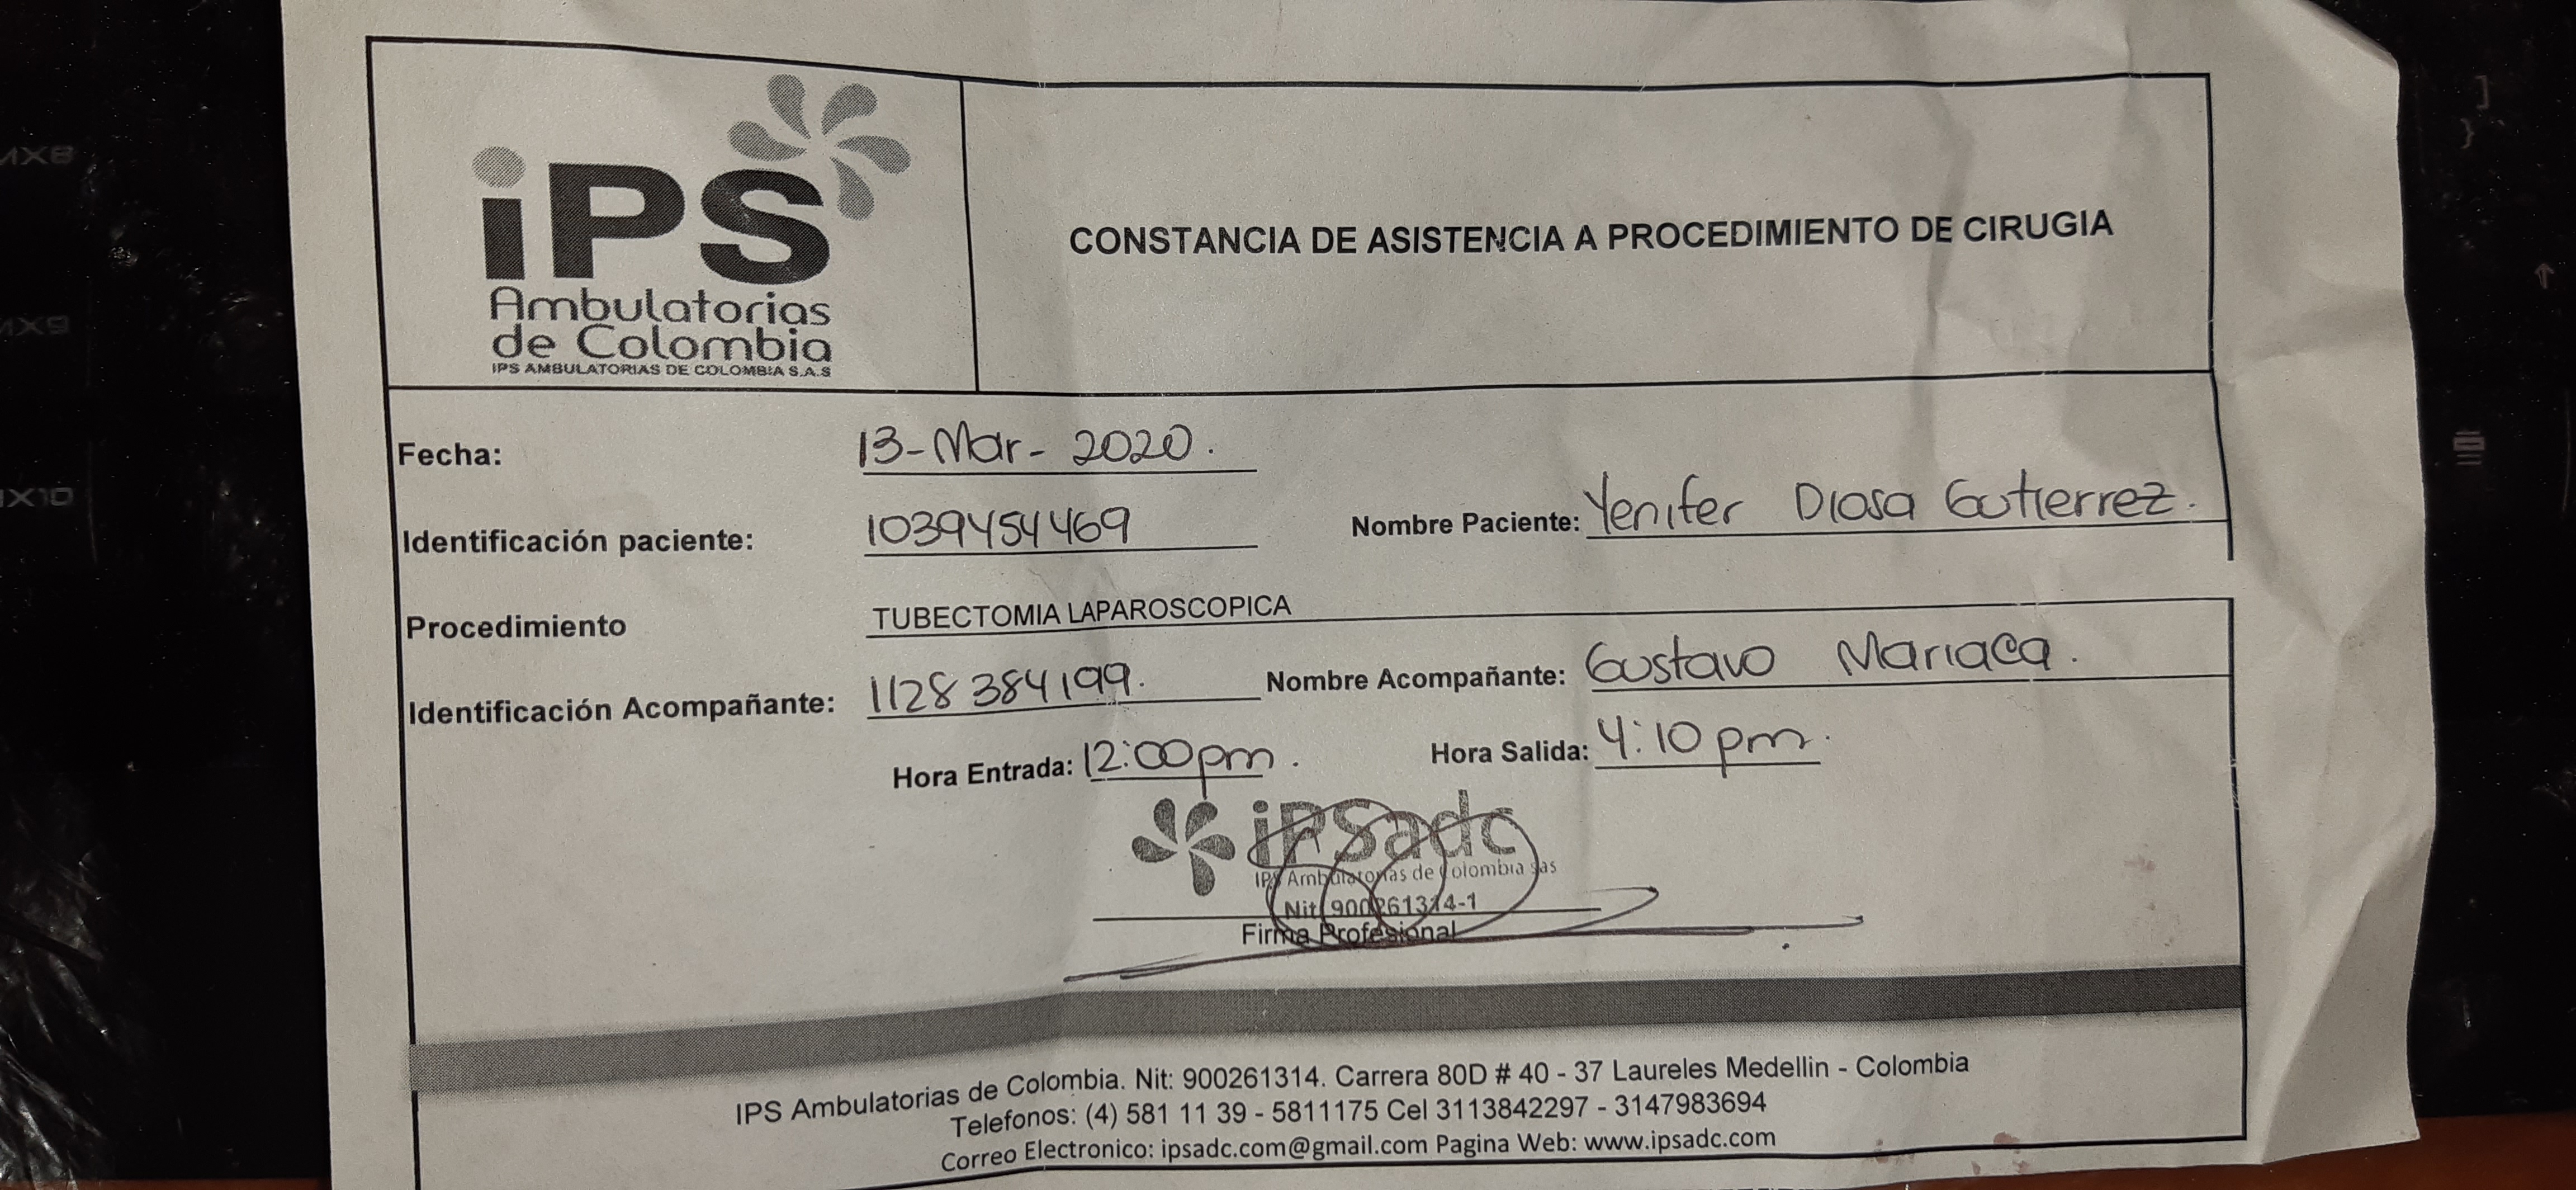 iPS
Ambulatorias
de Colombia
IPS AMBULATORIAS DE COLOMBIA S.A.S
CONSTANCIA DE ASISTENCIA A PROCEDIMIENTO DE CIRUGIA
Fecha: 13-Mar-2020.
Identificación paciente: 1039454469 Nombre Paciente: Yenifer Diosa Gutierrez.
Procedimiento TUBECTOMIA LAPAROSCOPICA
Identificación Acompañante: 1128384199. Nombre Acompañante: Gustavo Mariaca.
Hora Entrada: 12:00pm. Hora Salida: 4:10pm.
iPSadc
IPS Ambulatorias de Colombia sas
Nit. 900261314-1
Firma Profesional
IPS Ambulatorias de Colombia. Nit: 900261314. Carrera 80D # 40 - 37 Laureles Medellin - Colombia
Telefonos: (4) 581 11 39 - 5811175 Cel 3113842297 - 3147983694
Correo Electronico: ipsadc.com@gmail.com Pagina Web: www.ipsadc.com